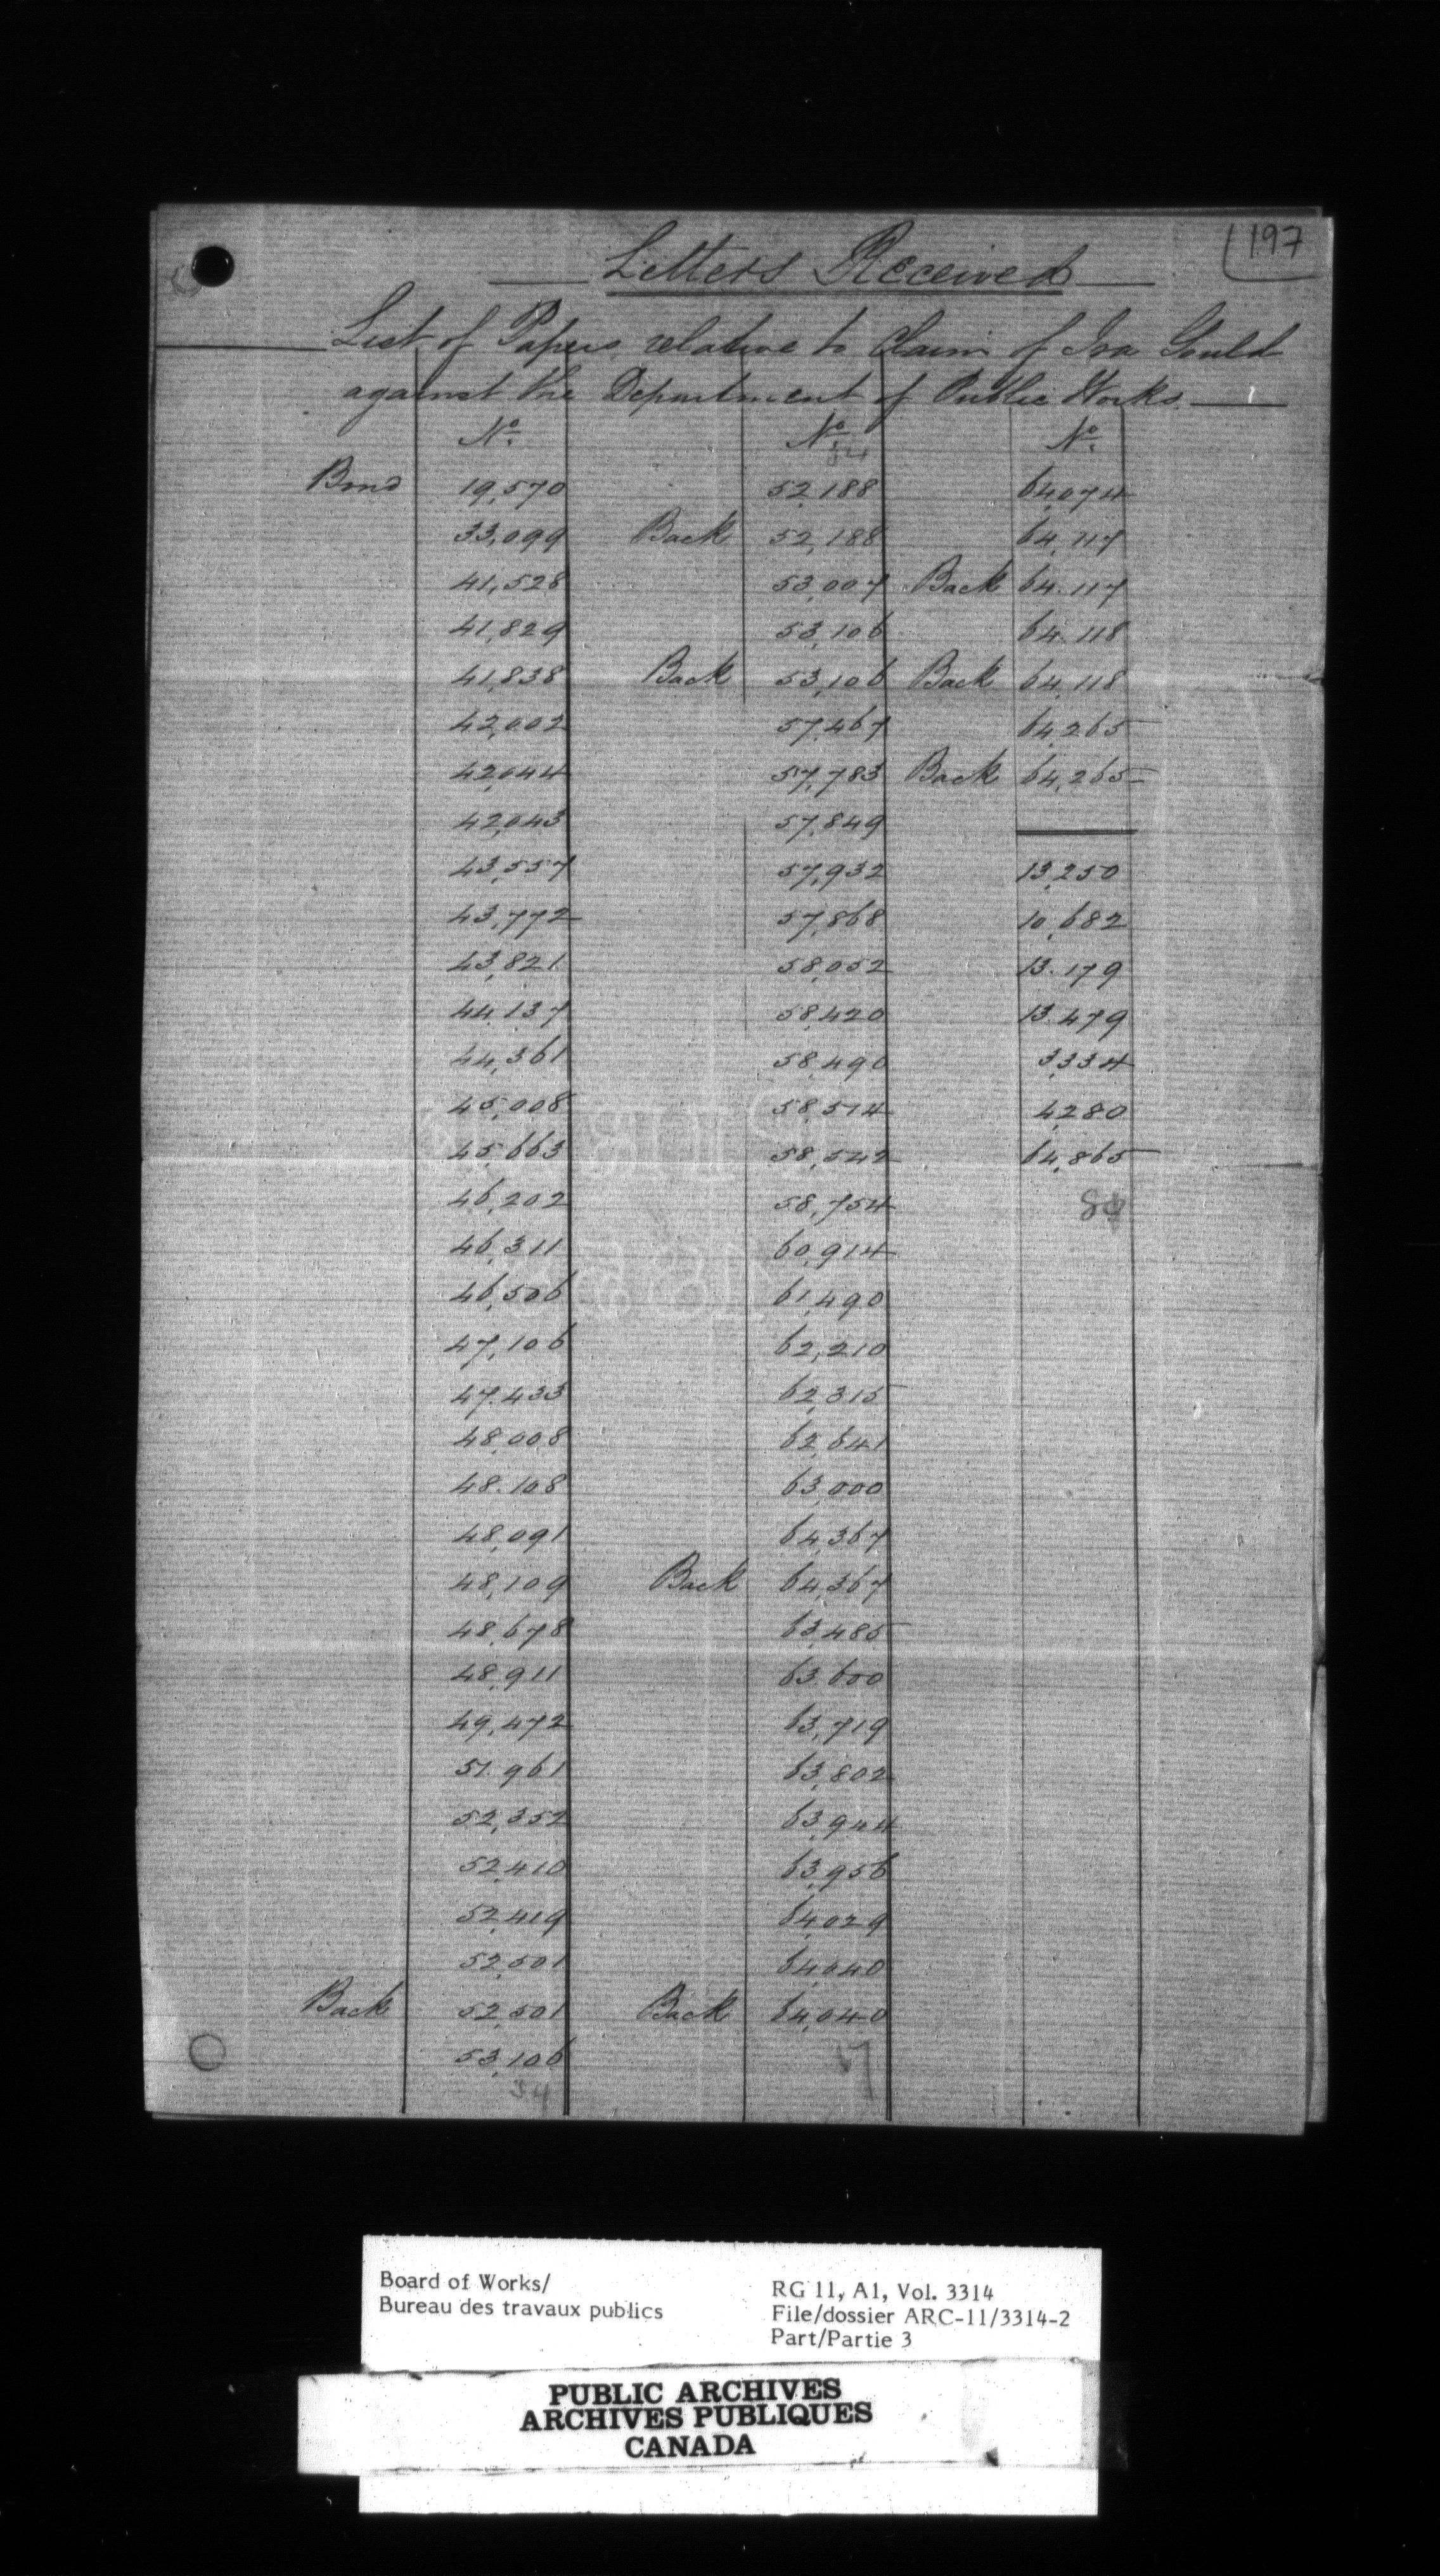 197
Letters Received
List of Papers relative to Claim of Ira Gould
against the Department of Public Works.
No. No. No.
34
Bond 19,570 52,188 64,074
33,099 Back 52,188 64,117
41,528 53,007 Back 64.117
41,829 53,106 64.118
41,838 Back 53,106 Back 64,118
42,002 57,467 64,265
42,044 57,783 Back 64,265
42,043 57,849
43,557 57,932 13,250
43,772 57,868 10,682
43,821 58,052 13.179
44,137 58,420 13.479
44,361 58,490 3,334
45,008 58,514 4,280
45,663 58,542 64,865
46,202 58,754
46,311 60,914
46,506 61,490
47,106 62,210
47.433 62,315
48,008 62,641
48.108 63,000
48,091 64,367
48,109 Back 64,367
48,678 63,485
48,911 63.600
49,472 63,719
51.961 63,802
52,352 63,944
52,410 63,956
52,419 64,029
52,501 64,040
Back 52,501 Back 64,040
53,106
34
Board of Works/ RG 11, A1, Vol. 3314
Bureau des travaux publics File/dossier ARC-11/3314-2
Part/Partie 3
PUBLIC ARCHIVES
ARCHIVES PUBLIQUES
CANADA